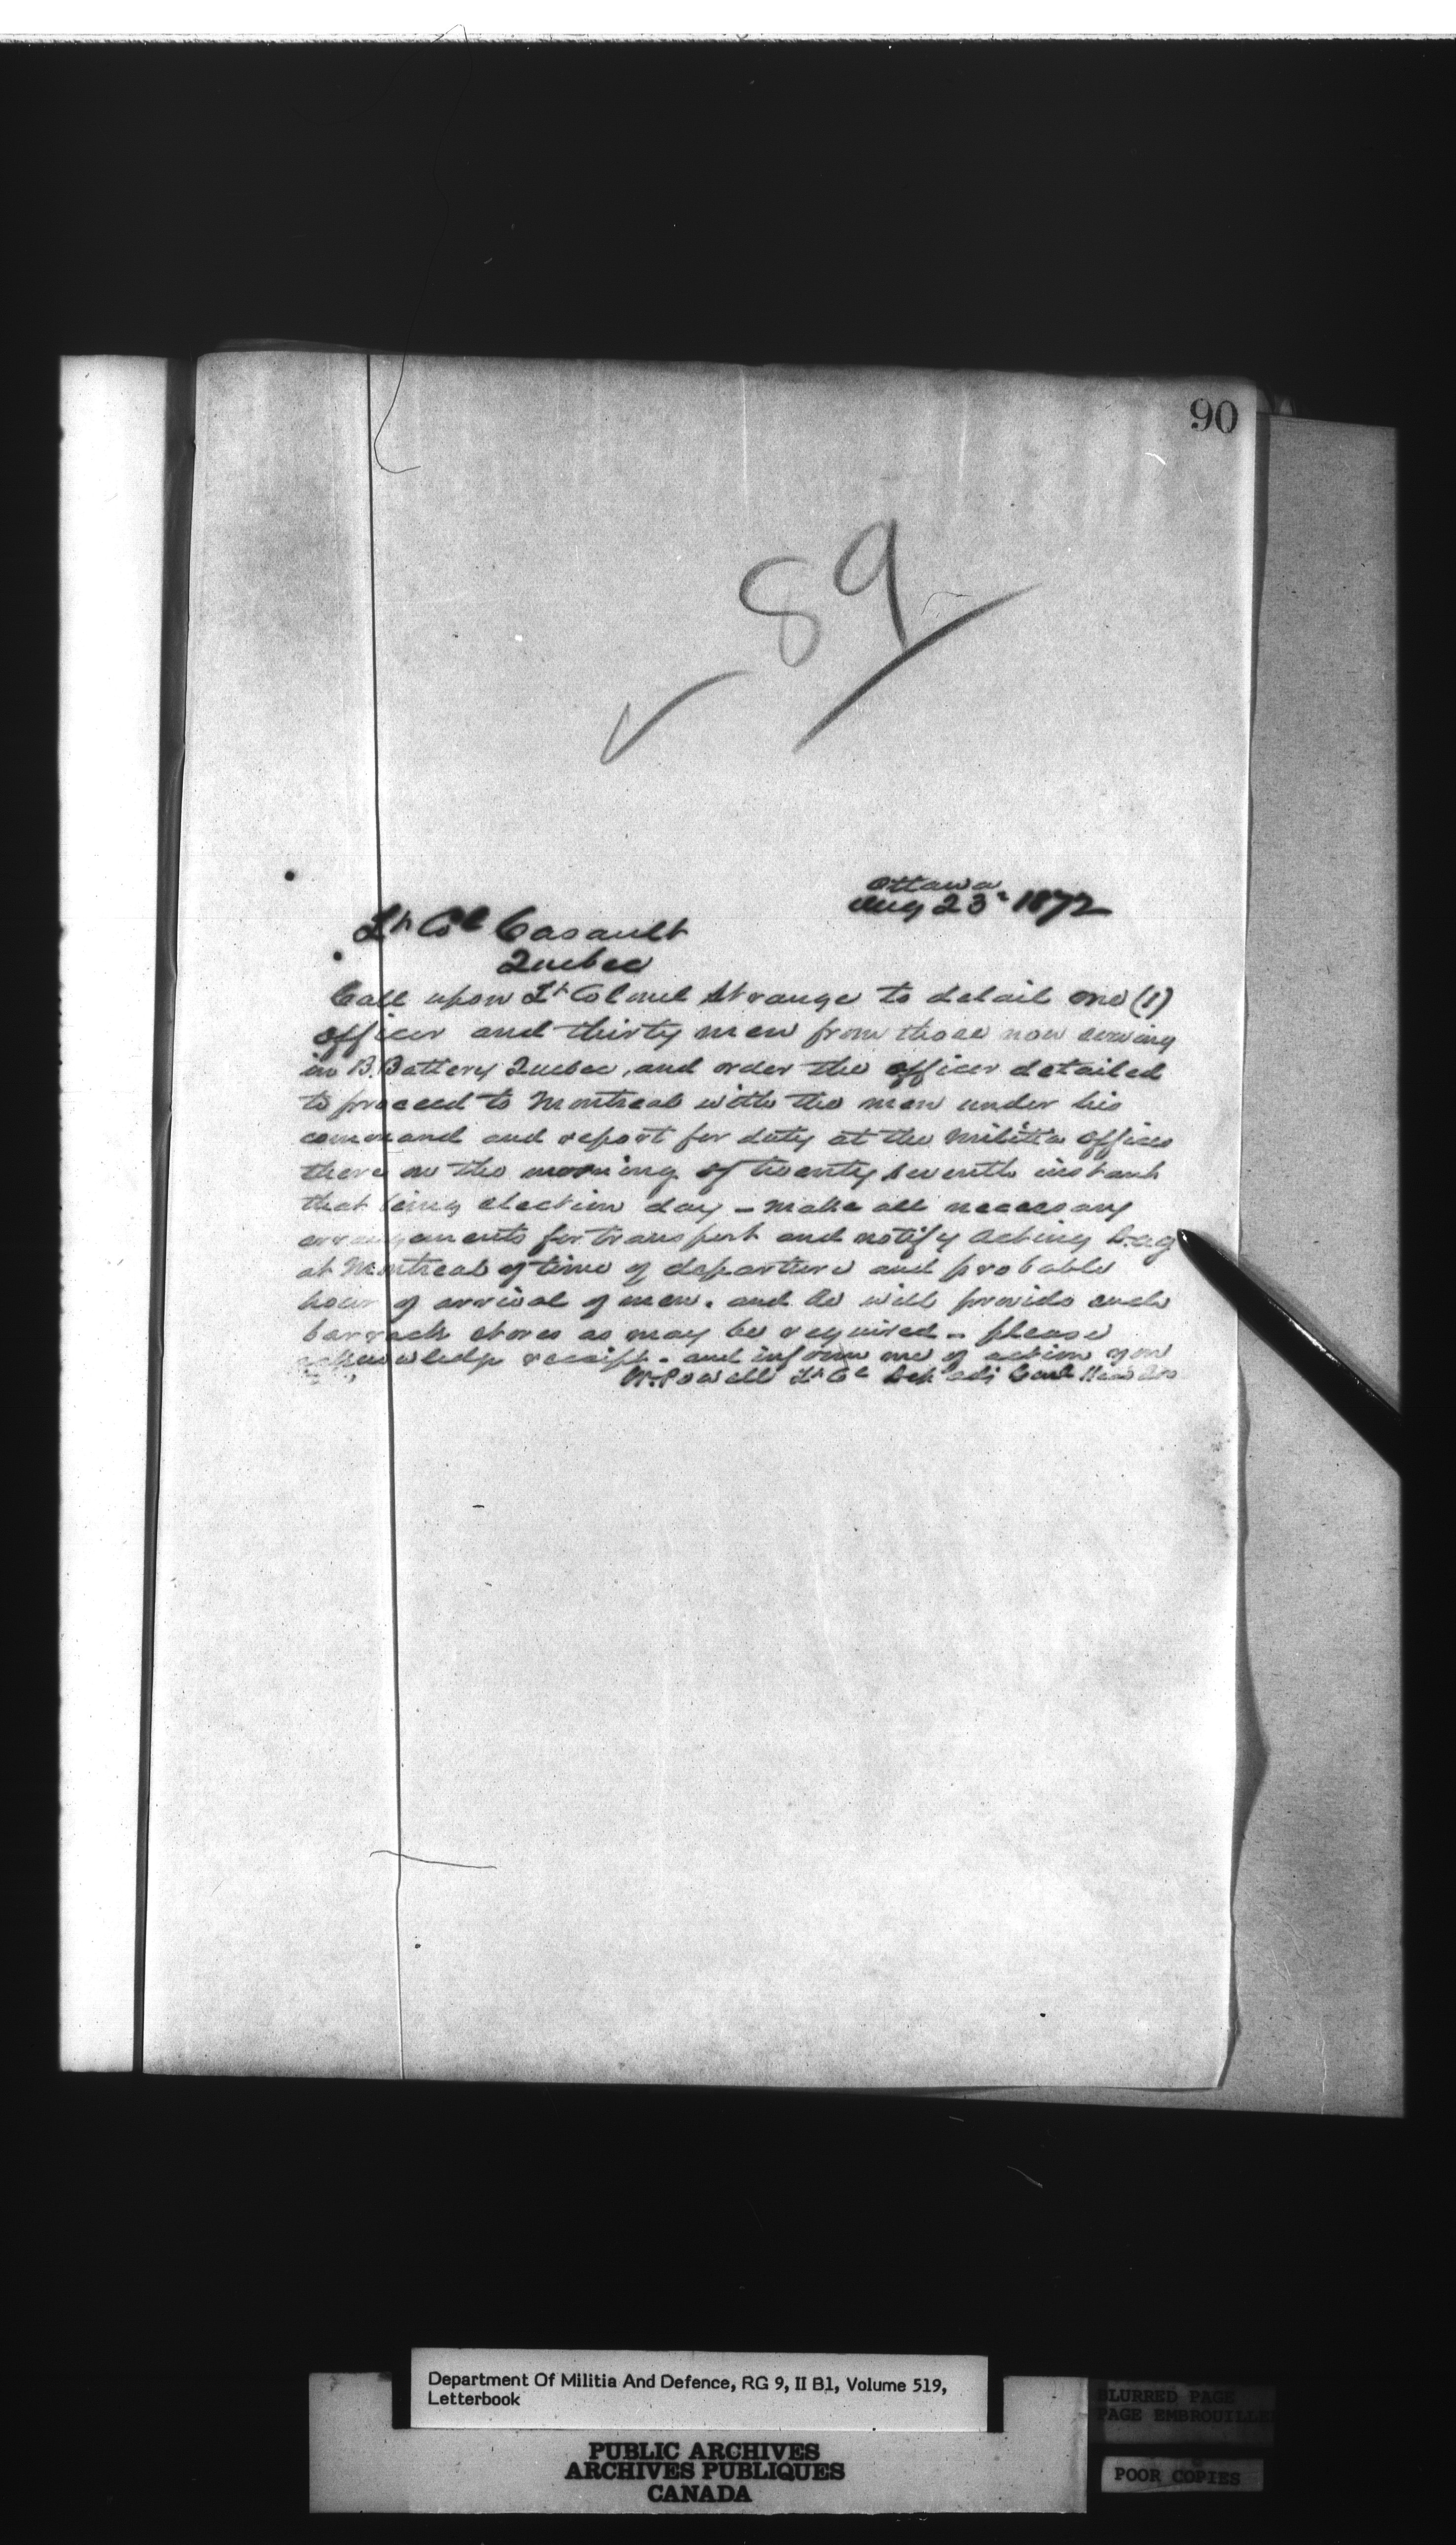 90
89
Ottawa
Aug 23d 1872
Lt Col Casault
Quebec
Call upon Lt Colonel Strange to detail one (1)
officer and thirty men from those now serving
in B. Battery Quebec, and order the officer detailed
to proceed to Montreal with the men under his
command and report for duty at the Militia Office
there on the morning of twenty seventh instant
that being election day - make all necessary
arrangements for transport and notify Acting Dag
at Montreal of time of departure and probable
hour of arrival of men. and he will provide such
barrack stores as may be required - please
acknowledge receipt - and inform me of action
W. Powell Lt Cl Dep Adj Genl Head Qrs
Department Of Militia And Defence, RG 9, II B1, Volume 519,
Letterbook
BLURRED PAGE
PAGE EMBROUILLEE
PUBLIC ARCHIVES
ARCHIVES PUBLIQUES
CANADA
POOR COPIES